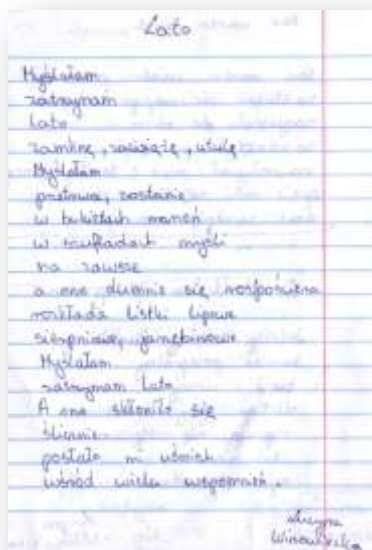 Lato
Myślałam
zatrzymam
lato
zamknę, zawiążę, utulę
Myślałam
przetrwa, zostanie
w bukietach marzeń
w szufladach myśli
na zawsze
a ono dumnie się
rozkłada listki lipowe
sierpniowe, jarzębinowe
Myślałam
zatrzymam lato
A ono skłoniło się
ślicznie
posłało mi uśmiech
wśród wielu wspomnień.